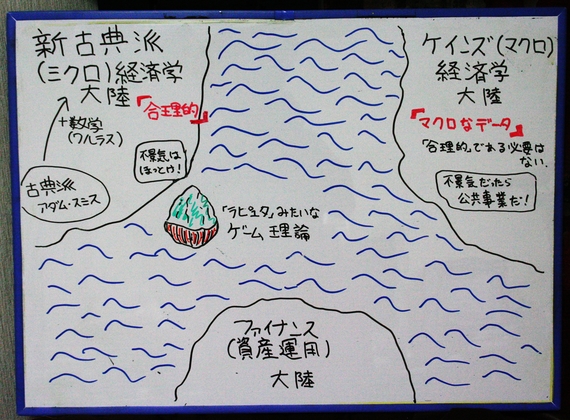 新古典派
(ミクロ)経済学
大陸
「合理的」
+数学
(ワルラス)
不景気は
ほっとけ!
古典派
アダム・スミス
「ラピュタ」みたいな
ゲーム理論
ケインズ(マクロ)
経済学
大陸
「マクロなデータ」
「合理的」である必要は
ない.
不景気だったら
公共事業だ!
ファイナンス
(資産運用)
大陸